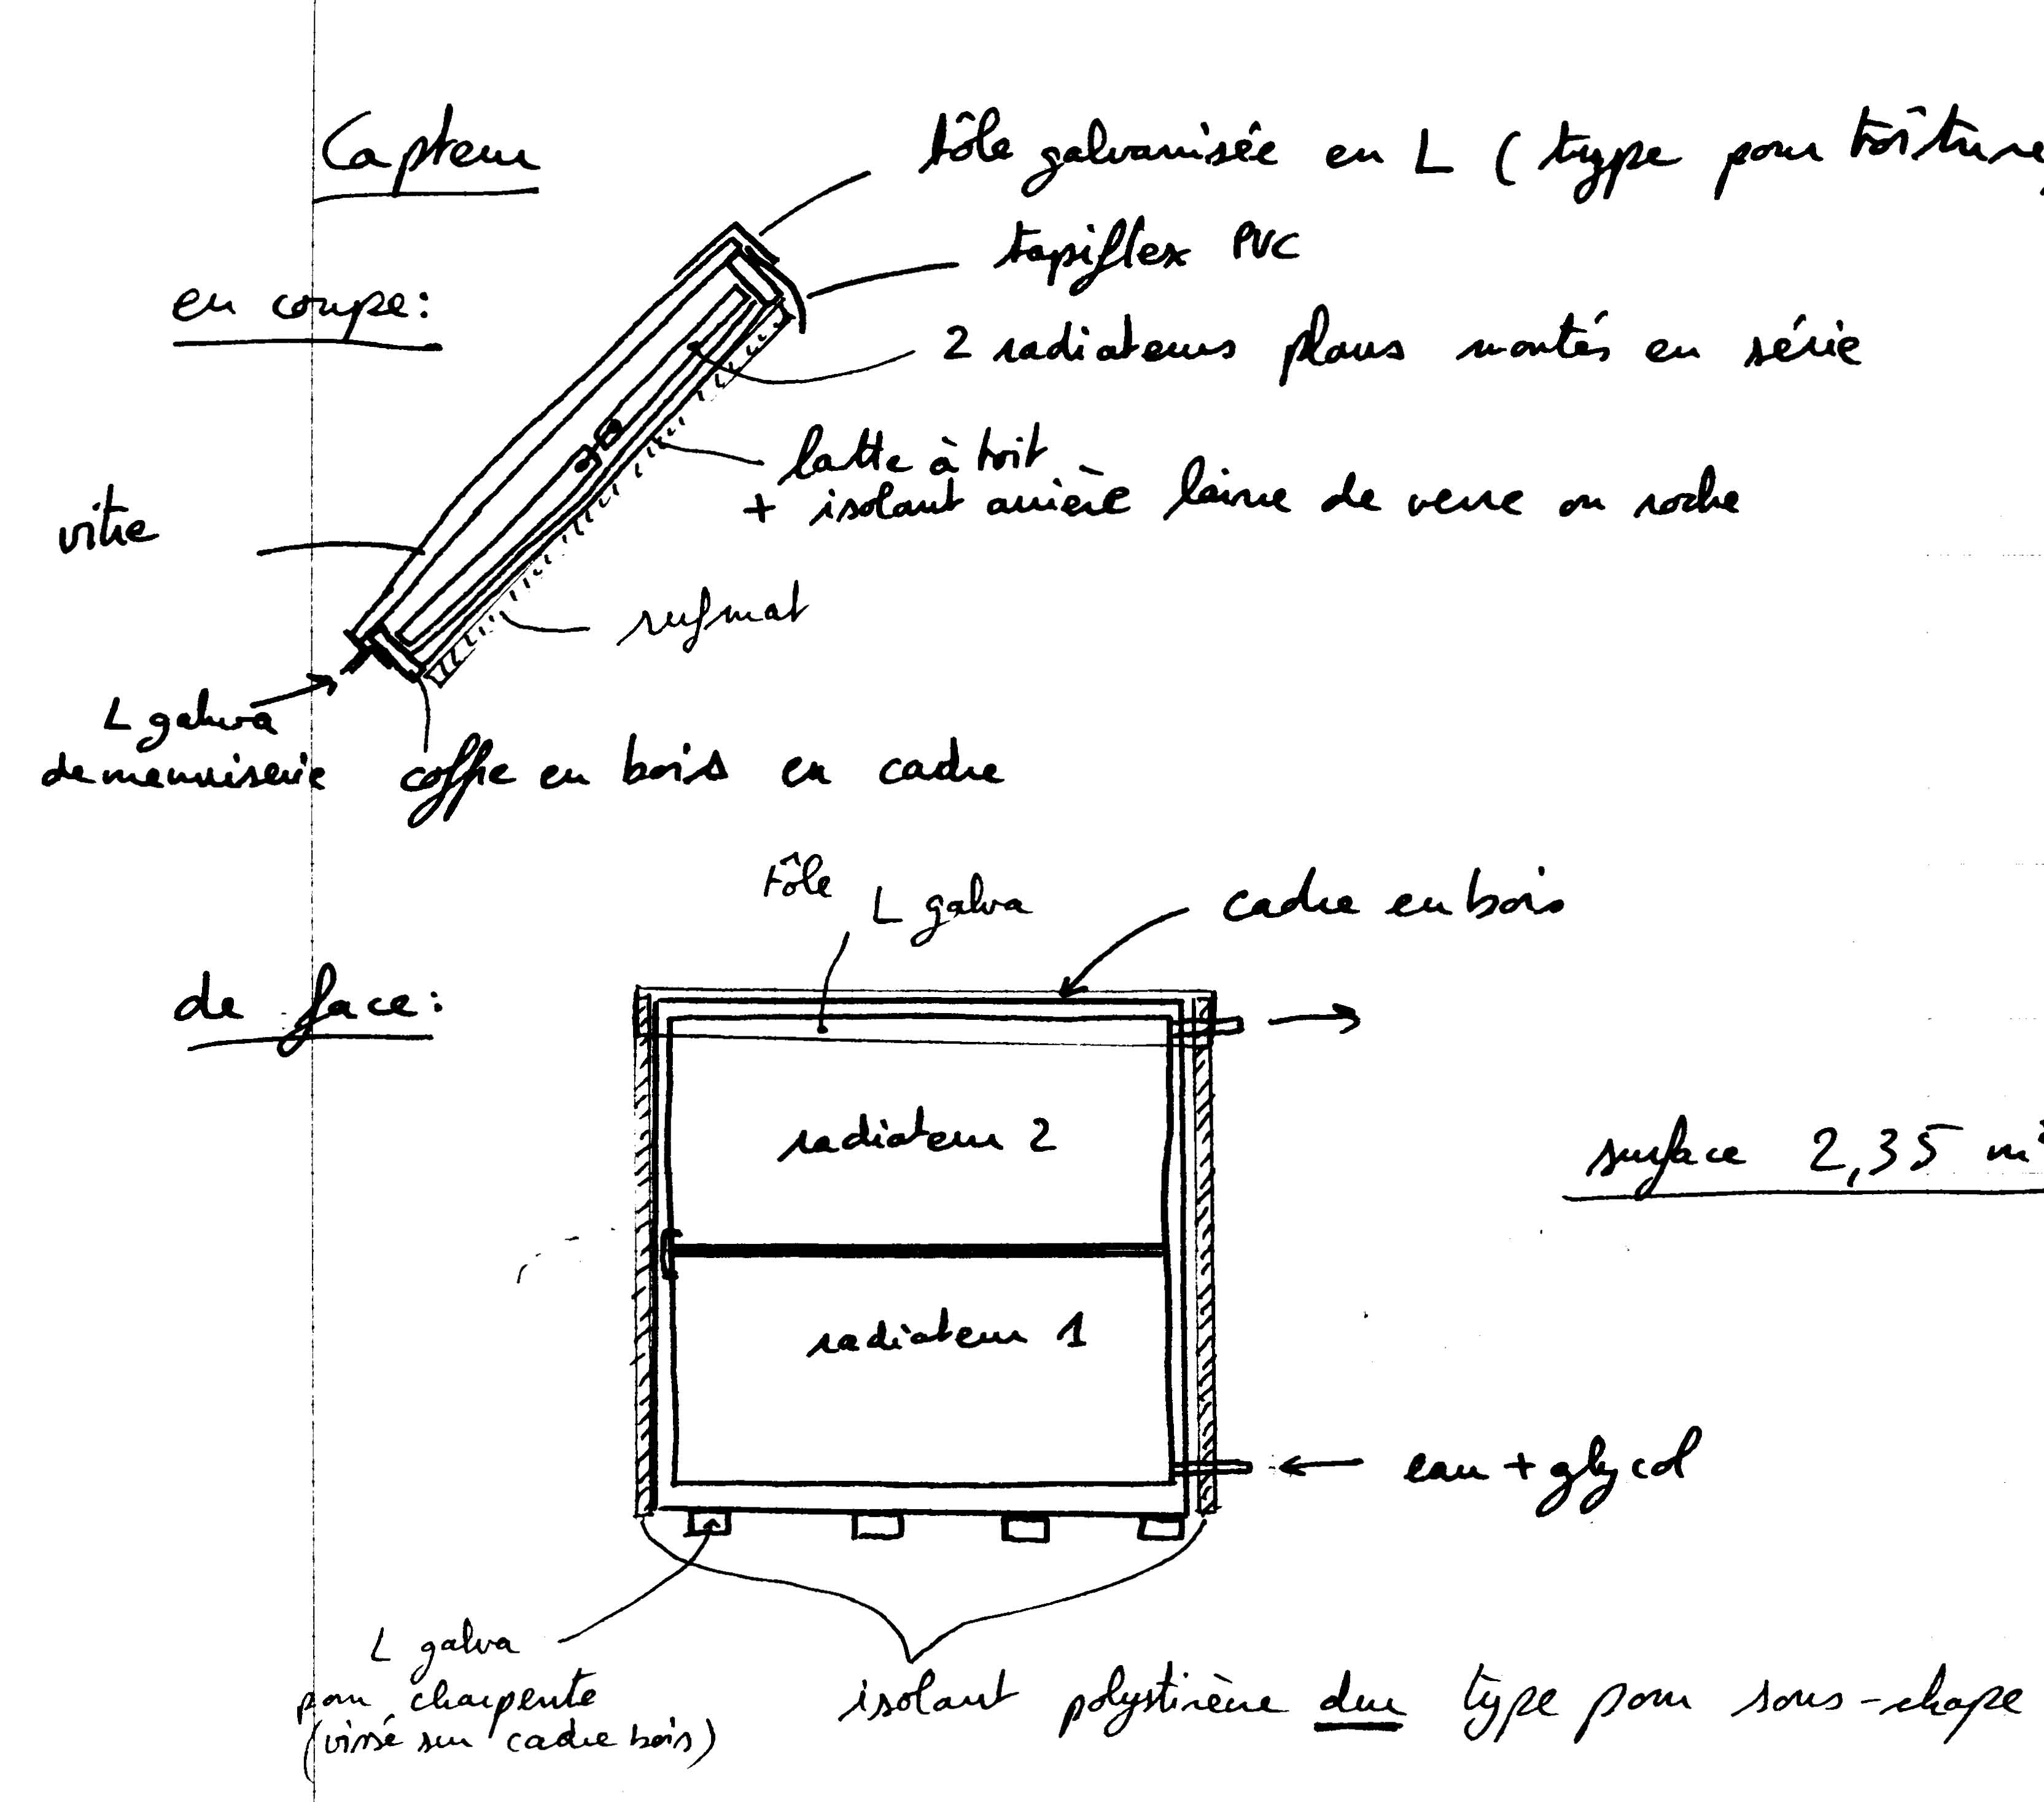 Capteur
tôle galvanisée en L (type pour toîture
tapiflex PVC
en coupe:
2 radiateurs plans montés en série
latte à toit
+ isolant arrière laine de verre ou roche
vitre
rufmat
L galva
de menuiserie
coffre en bois en cadre
tôle L galva
cadre en bois
de face:
radiateur 2
surface 2,35 m²
radiateur 1
eau + glycol
L galva
pour charpente
(vissé sur cadre bois)
isolant polystirène dur type pour sous-chape